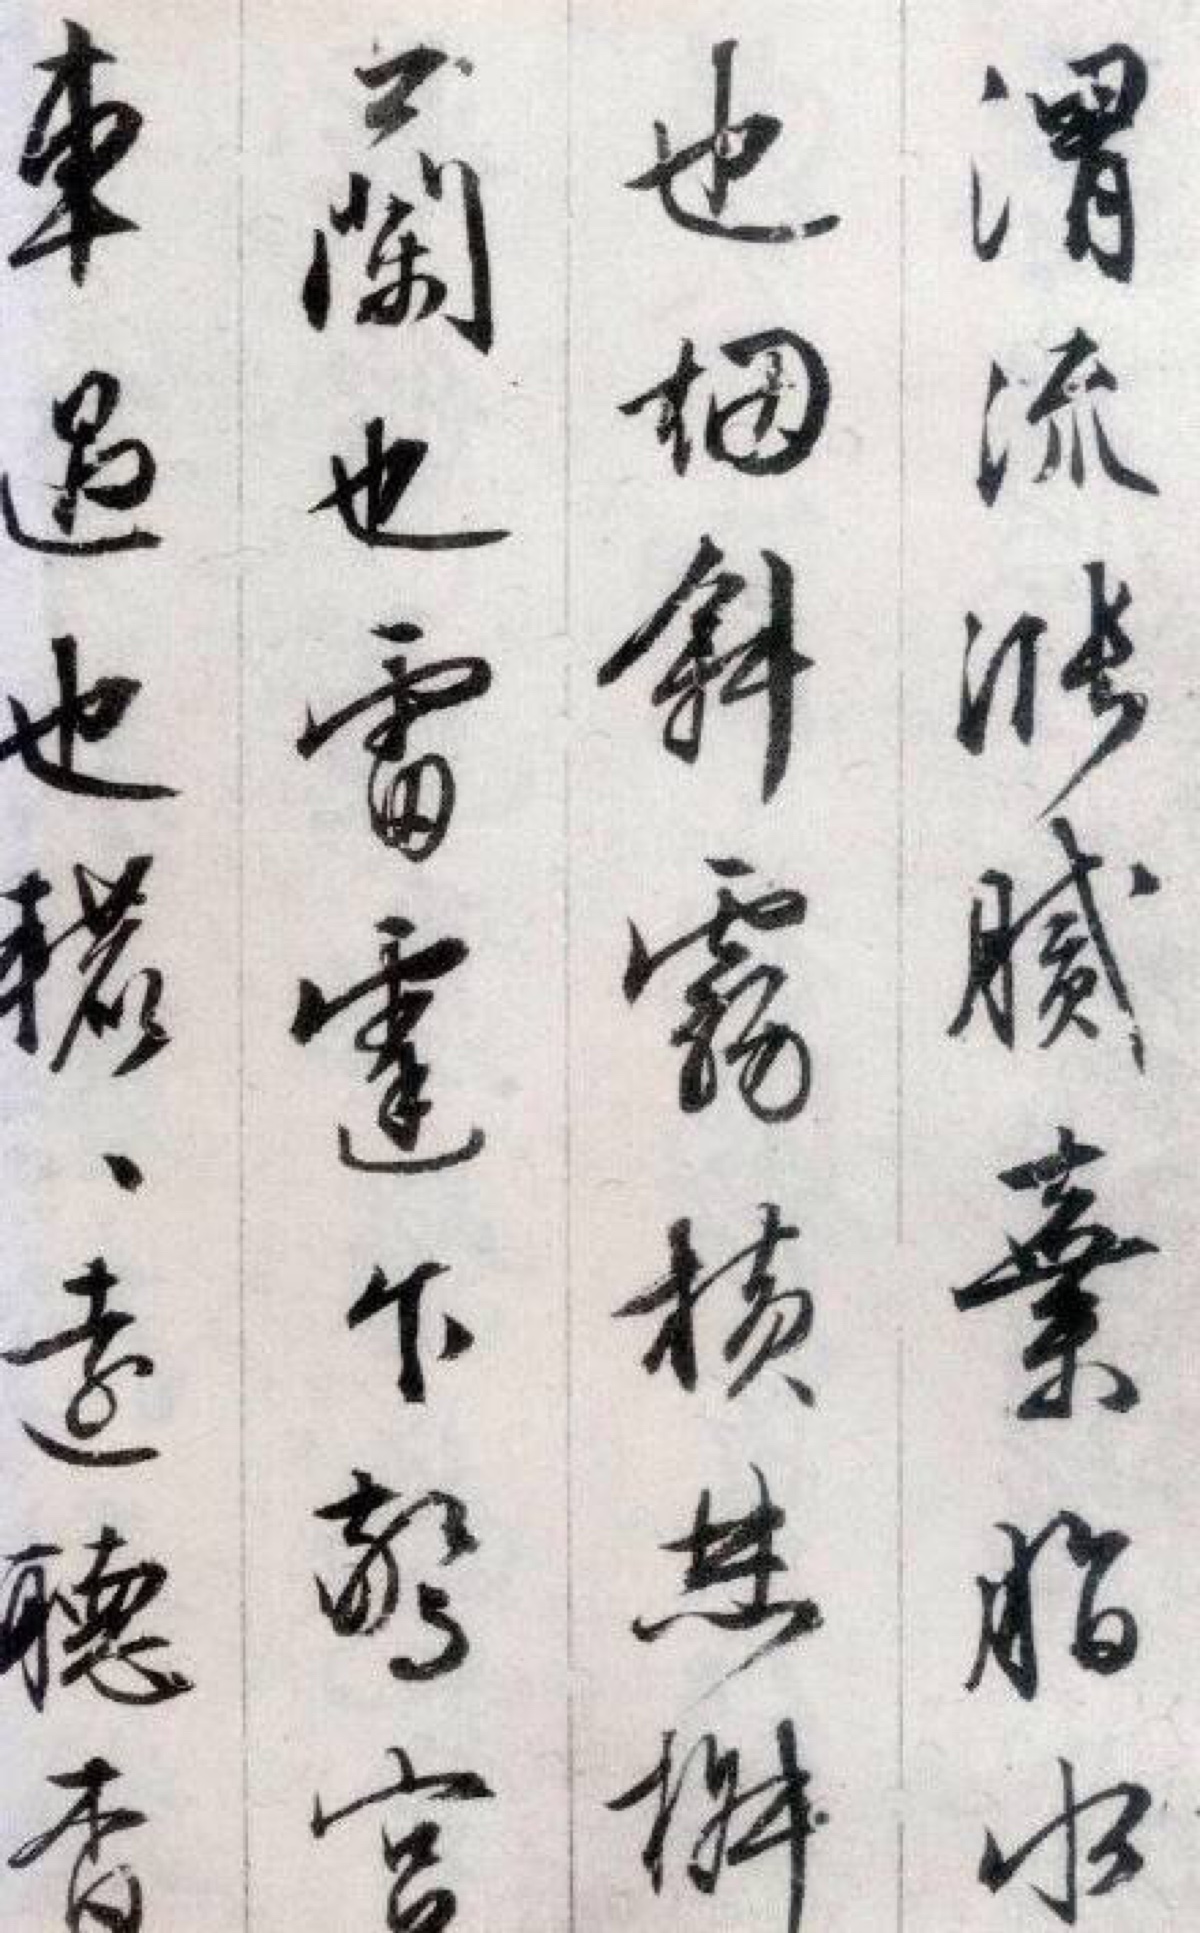 渭流漲膩棄脂水
也烟斜霧橫焚椒
蘭也雷霆乍驚宮
車過也轆、遠聽杳